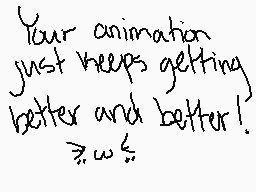 Your animation
just keeps getting
better and better!
≥ω≤